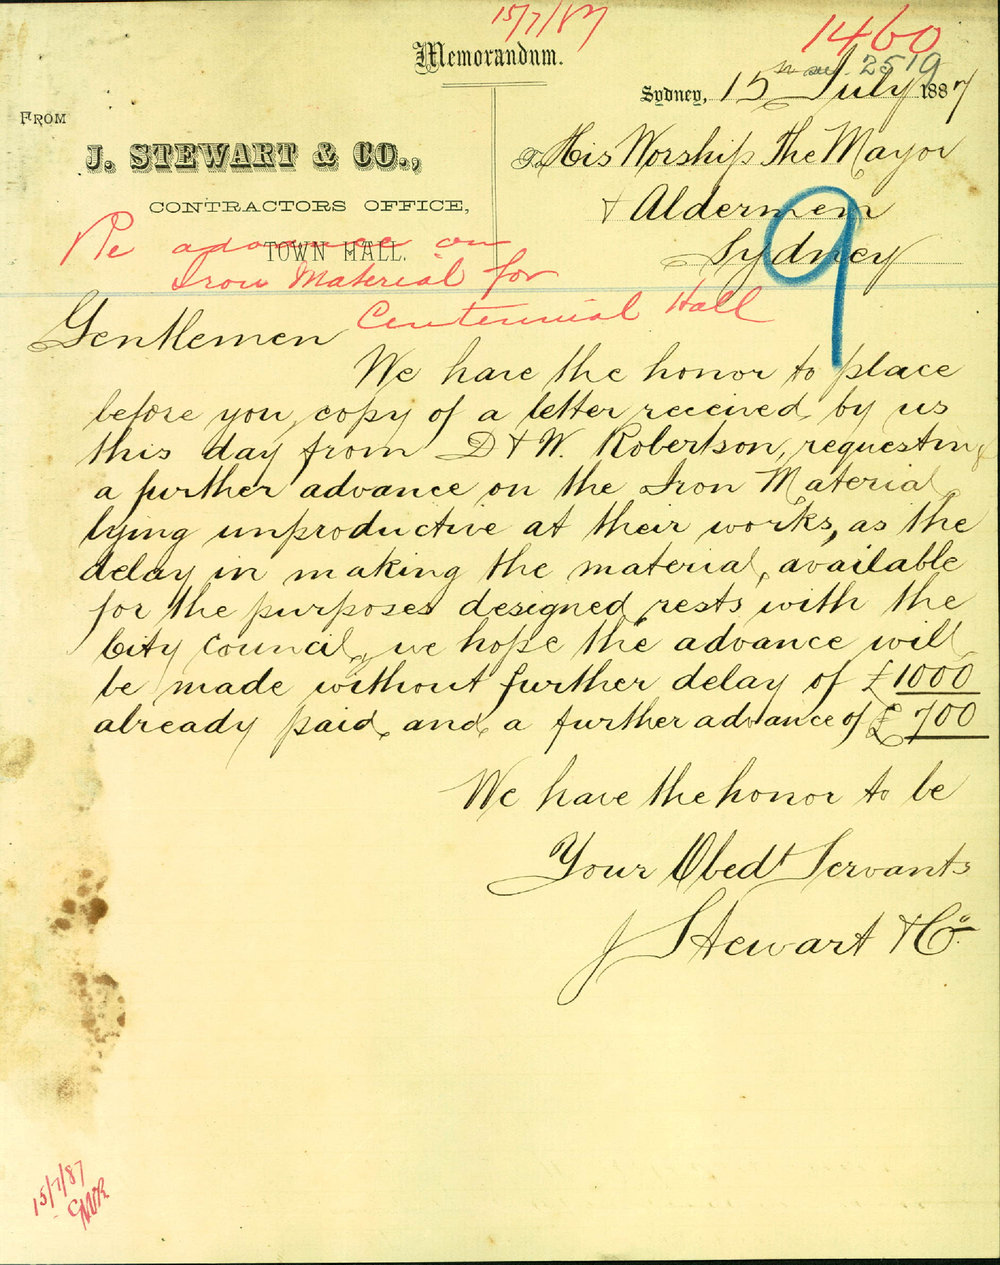 15/7/87
1460
Memorandum.
2519
Sydney, 15 July 1887
FROM
J. STEWART & CO.,
To His Worship The Mayor
CONTRACTORS OFFICE,
& Aldermen
TOWN HALL.
Sydney
9
Re advance on
Iron Material for
Centennial Hall
Gentlemen
We have the honor to place
before you copy of a letter received by us
this day from D & W. Robertson, requesting
a further advance on the Iron Material
lying unproductive at their works, as the
delay in making the material available
for the purposes designed rests with the
City Council, we hope the advance will
be made without further delay of £1000
already paid and a further advance of £700
We have the honor to be
Your Obedt Servants
J Stewart & Co.
15/7/87